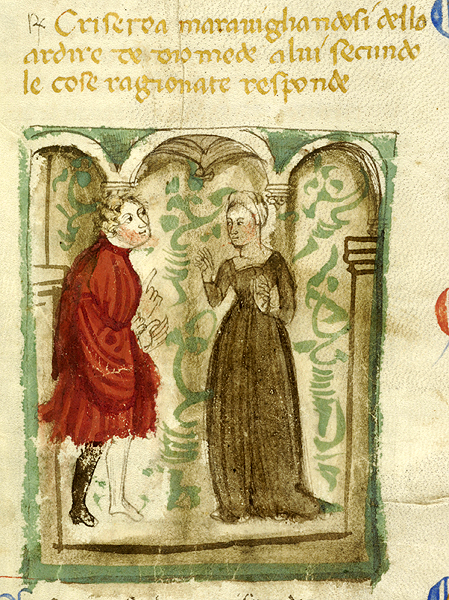 Criseida maravigliandosi dello
ardire de diomede a lui secundo
le cose ragionate responde